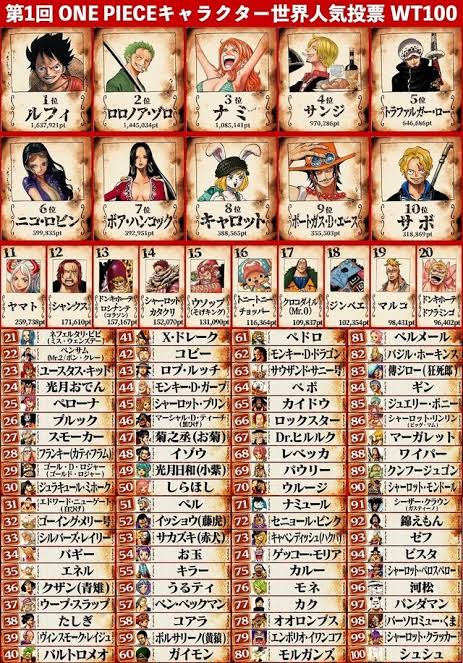 第1回 ONE PIECEキャラクター世界人気投票 WT100
1位
ルフィ
1,637,921pt
2位
ロロノア・ゾロ
1,445,034pt
3位
ナミ
1,085,141pt
4位
サンジ
970,286pt
5位
トラファルガー・ロー
646,686pt
6位
ニコ・ロビン
599,835pt
7位
ボア・ハンコック
392,951pt
8位
キャロット
388,565pt
9位
ポートガス・D・エース
355,503pt
10位
サボ
318,869pt
11
ヤマト
259,738pt
12
シャンクス
171,610pt
13
ドンキホーテ・ロシナンテ
(コラソン)
157,167pt
14
シャーロット・カタクリ
152,070pt
15
ウソップ
(そげキング)
131,090pt
16
トニートニー・チョッパー
116,364pt
17
クロコダイル
(Mr.0)
109,837pt
18
ジンベエ
102,354pt
19
マルコ
98,431pt
20
ドンキホーテ・ドフラミンゴ
96,402pt
21 ネフェルタリ・ビビ
(ミス・ウェンズデー)
22 ベンサム
(Mr.2ボン・クレー)
23 ユースタス・キッド
24 光月おでん
25 ペローナ
26 ブルック
27 スモーカー
28 フランキー(カティ・フラム)
29 ゴール・D・ロジャー
(ゴールド・ロジャー)
30 ジュラキュール・ミホーク
31 エドワード・ニューゲート
(白ひげ)
32 ゴーイング・メリー号
33 シルバーズ・レイリー
34 バギー
35 エネル
36 クザン(青雉)
37 ウープ・スラップ
38 たしぎ
39 ヴィンスモーク・レイジュ
40 バルトロメオ
41 X・ドレーク
42 コビー
43 ロブ・ルッチ
44 モンキー・D・ガープ
45 シャーロット・プリン
46 マーシャル・D・ティーチ
(黒ひげ)
47 菊之丞(お菊)
48 イゾウ
49 光月日和(小紫)
50 しらほし
51 ベル
52 イッショウ(藤虎)
53 サカズキ(赤犬)
54 お玉
55 キラー
56 うるティ
57 ベン・ベックマン
58 コアラ
59 ボルサリーノ(黄猿)
60 ガイモン
61 ペドロ
62 モンキー・D・ドラゴン
63 サウザンド・サニー号
64 ベポ
65 カイドウ
66 ロックスター
67 Dr.ヒルルク
68 レベッカ
69 パウリー
70 ウルージ
71 ナミュール
72 セニョール・ピンク
73 キャベンディッシュ(ハクバ)
74 ゲッコー・モリア
75 カルー
76 モネ
77 カク
78 オオロンブス
79 エンポリオ・イワンコフ
80 モルガンズ
81 ベルメール
82 バジル・ホーキンス
83 傳ジロー(狂死郎)
84 ギン
85 ジュエリー・ボニー
86 シャーロット・リンリン
(ビッグ・マム)
87 マーガレット
88 ワイパー
89 クンフージュゴン
90 シャーロット・モンドール
91 シーザー・クラウン
(ガスティーノ)
92 錦えもん
93 ゼフ
94 ビスタ
95 シャーロット・ペロスペロー
96 河松
97 パンダマン
98 バーソロミュー・くま
99 シャーロット・クラッカー
100 シュシュ